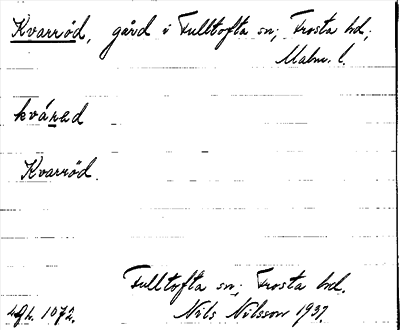 Kvarröd, gård i Fulltofta sn; Frosta hd;
Malm. l.
kvárad
Kvarröd.
Fulltofta sn; Frosta hd.
Nils Nilsson 1937.
1072.